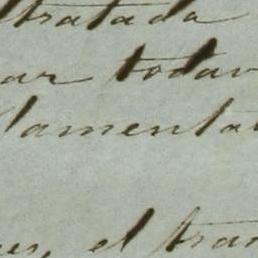 tratada
ar todav
lamenta
es, el tran